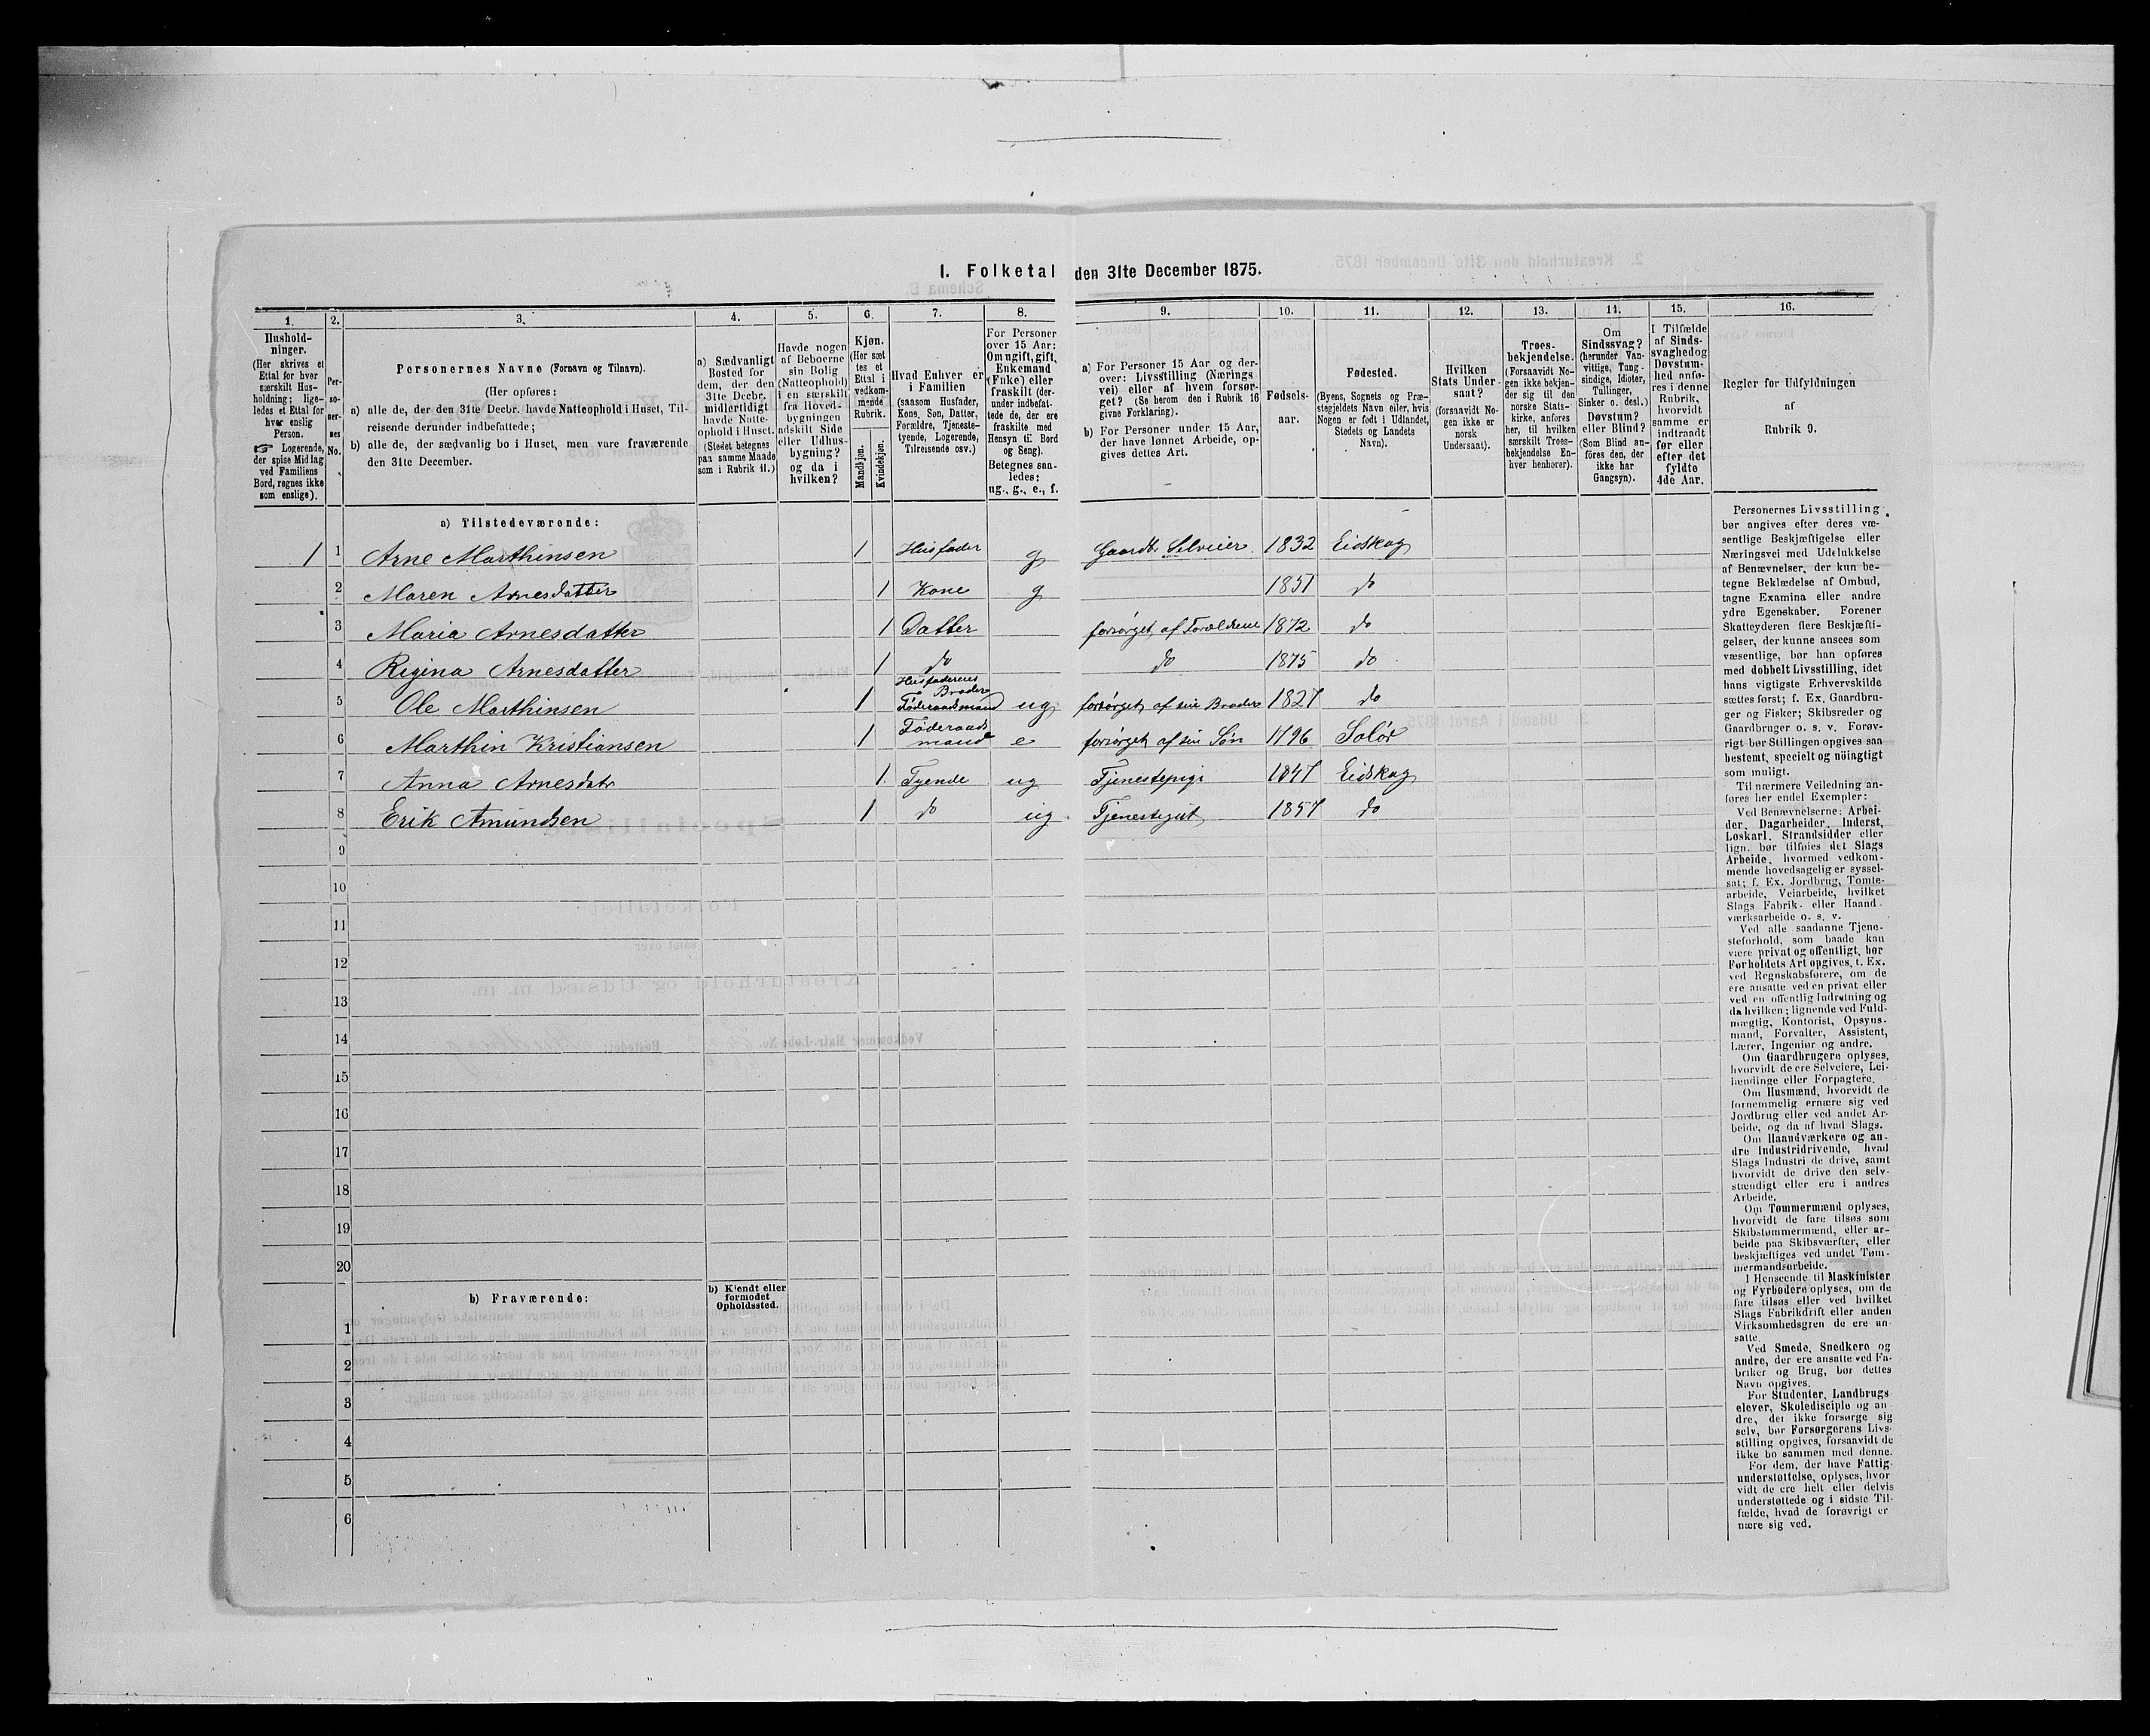 I. Folketal den 31te December 1875.
1. 2. 3. 4. 5. 6. 7. 8. 9. 10. 11. 12. 13. 14. 15. 16.
Hushold-
ninger.
(Her skrives et
Ettal for hver
særskilt Hus-
holdning; lige-
ledes et Ettal for
hver enslig
Person.
☞ Logerende,
der spise Middag
ved Familiens
Bord, regnes ikke
som enslige).
Per-
so-
ner-
nes
No.
Personernes Navne (Fornavn og Tilnavn).
(Her opføres:
a) alle de, der den 31te Decbr. havde Natteophold i Huset, Til-
reisende derunder indbefattede;
b) alle de, der sædvanlig bo i Huset, men vare fraværende
den 31te December.
a) Sædvanligt
Bosted for
dem, der den
31te Decbr.
midlertidigt
havde Natte-
ophold i Huset.
(Stedet betegnes
paa samme Maade
som i Rubrik 11.)
Havde nogen
af Beboerne
sin Bolig
(Natteophold)
i en særskilt
fra Hoved-
bygningen
adskilt Side
eller Udhus-
bygning?
og da i
hvilken?
Kjøn.
(Her sæt
tes et
Ettal i
vedkom-
mende
Rubrik.
Mandkjøn.
Kvindekjøn.
Hvad Enhver er
i Familien
(saasom Husfader,
Kone, Søn, Datter,
Forældre, Tjeneste-
tyende, Logerende,
Tilreisende osv.)
For Personer
over 15 Aar:
Om ugift, gift,
Enkemand
(Enke) eller
fraskilt (der-
under indbefat-
tede de, der ere
fraskilte med
Hensyn til Bord
og Seng).
Betegnes saa-
ledes:
ug., g., e., f.
a) For Personer 15 Aar og der-
over: Livsstilling (Nærings
vei) eller af hvem forsør-
get? (Se herom den i Rubrik 16
givne Forklaring).
b) For Personer under 15 Aar,
der have lønnet Arbeide, op-
gives dettes Art.
Fødsels-
aar.
Fødested.
(Byens, Sognets og Præ-
stegjeldets Navn eller, hvis
Nogen er født i Udlandet,
Stedets og Landets
Navn).
Hvilken
Stats Under-
saat?
(forsaavidt No-
gen ikke er
norsk
Undersaat).
Troes-
bekjendelse.
(Forsaavidt No-
gen ikke bekjen-
der sig til den
norske Stats-
kirke, anføres
her, til hvilken
særskilt Troes-
bekjendelse En-
hver henhører).
Om
Sindssvag?
(herunder Van-
vittige, Tung-
sindige, Idioter,
Tullinger,
Sinker o. desl.)
Døvstum?
eller Blind?
(Som Blind an-
føres den, der
ikke har
Gangsyn).
I Tilfælde
af Sinds-
svaghed og
Døvstum-
hed anfø-
res i denne
Rubrik,
hvorvidt
samme er
indtraadt
før eller
efter det
fyldte
4de Aar.
Regler for Udfyldningen
af
Rubrik 9.
a) Tilstedeværende:
1 1 Arne Marthinsen 1 Husfader g Gaardbr. Selveier 1832 Eidskog
2 Maren Arnesdatter 1 Kone g 1851 do
3 Maria Arnesdatter 1 Datter forsørget af Forældrene 1872 do
4 Regina Arnesdatter 1 do do 1875 do
5 Ole Marthinsen 1 Husfaderens Broder Föderaadsmand ug forsørget af sin Broder 1827 do
6 Marthin Kristiansen 1 Föderaads mand e forsørget af sin Søn 1796 Solör
7 Anna Arnesdatr 1 Tyende ug Tjenestepige 1847 Eidskog
8 Erik Amundsen 1 do ug Tjenestegut 1857 do
9
10
11
12
13
14
15
16
17
18
19
20
b) Fraværende:
b) Kjendt eller
formodet
Opholdssted.
1
2
3
4
5
6
Personernes Livsstilling
bør angives efter deres væ-
sentlige Beskjæftigelse eller
Næringsvei med Udelukkelse
af Benævnelser, der kun be-
tegne Beklædelse af Ombud,
tagne Examina eller andre
ydre Egenskaber. Forener
Skatteyderen flere Beskjæfti-
gelser, der kunne ansees som
væsentlige, bør han opføres
med dobbelt Livsstilling, idet
hans vigtigste Erhvervskilde
sættes først; f. Ex. Gaardbru-
ger og Fisker; Skibsreder og
Gaardbruger o. s. v. Forøv-
rigt bør Stillingen opgives saa
bestemt, specielt og nöiagtigt
som muligt.
Til nærmere Veiledning an-
føres her endel Exempler:
Ved Benævnelserne: Arbei-
der, Dagarbeider, Inderst,
Løskarl, Strandsidder eller
lign. bør tilføies det Slags
Arbeide, hvormed vedkom-
mende hovedsagelig er syssel-
sat; f. Ex. Jordbrug, Tomte-
arbeide, Veiarbeide, hvilket
Slags Fabrik- eller Haand-
værksarbeide o. s. v.
Ved alle saadanne Tjene-
steforhold, som baade kan
være privat og offentligt, bør
Forholdets Art opgives, f. Ex.
ved Regnskabsførere, om de
ere ansatte ved en privat eller
ved en offentlig Indretning og
da hvilken; lignende ved Fuld-
mægtig, Kontorist, Opsyns-
mand, Forvalter, Assistent,
Lærer, Ingeniør og andre.
Om Gaardbrugere oplyses,
hvorvidt de ere Selveiere, Lei-
lændinge eller Forpagtere.
Om Husmænd, hvorvidt de
fornemmelig ernære sig ved
Jordbrug eller ved andet Ar-
beide, og da af hvad Slags.
Om Haandværkere og an-
dre Industridrivende, hvad
Slags Industri de drive, samt
hvorvidt de drive den selv-
stændigt eller ere i andres
Arbeide.
Om Tømmermænd oplyses,
hvorvidt de fare tilsøs som
Skibstømmermænd, eller ar-
beide paa Skibsværfter, eller
beskjæftiges ved andet Tøm-
mermandsarbeide.
I Henseende til Maskinister
og Fyrbødere oplyses, om de
fare tilsøs eller ved hvilket
Slags Fabrikdrift eller anden
Virksomhedsgren de ere an-
satte.
Ved Smede, Snedkere og
andre, der ere ansatte ved Fa-
briker og Brug, bør dettes
Navn opgives.
For Studenter, Landbrugs
elever, Skoledisciple og an
dre, der ikke forsørge sig
selv, bør Forsørgerens Livs-
stilling opgives, forsaavidt de
ikke bo sammen med denne.
For dem, der have Fattig-
understøttelse, oplyses, hvor
vidt de ere helt eller delvis
understøttede og i sidste Til-
fælde, hvad de forøvrigt er
nære sig ved.